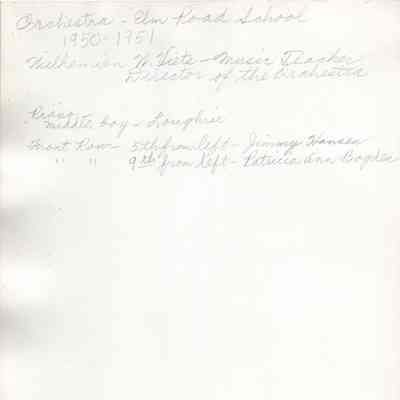 Orchestra - Elm Road School
1950-1951
W. Viets - Music Teacher
Director of the Orchestra
Piano
middle boy - Loughrie
Front Row - 5th from left - Jimmy Hansen
" " 9th from left - Patricia Ann Bogden